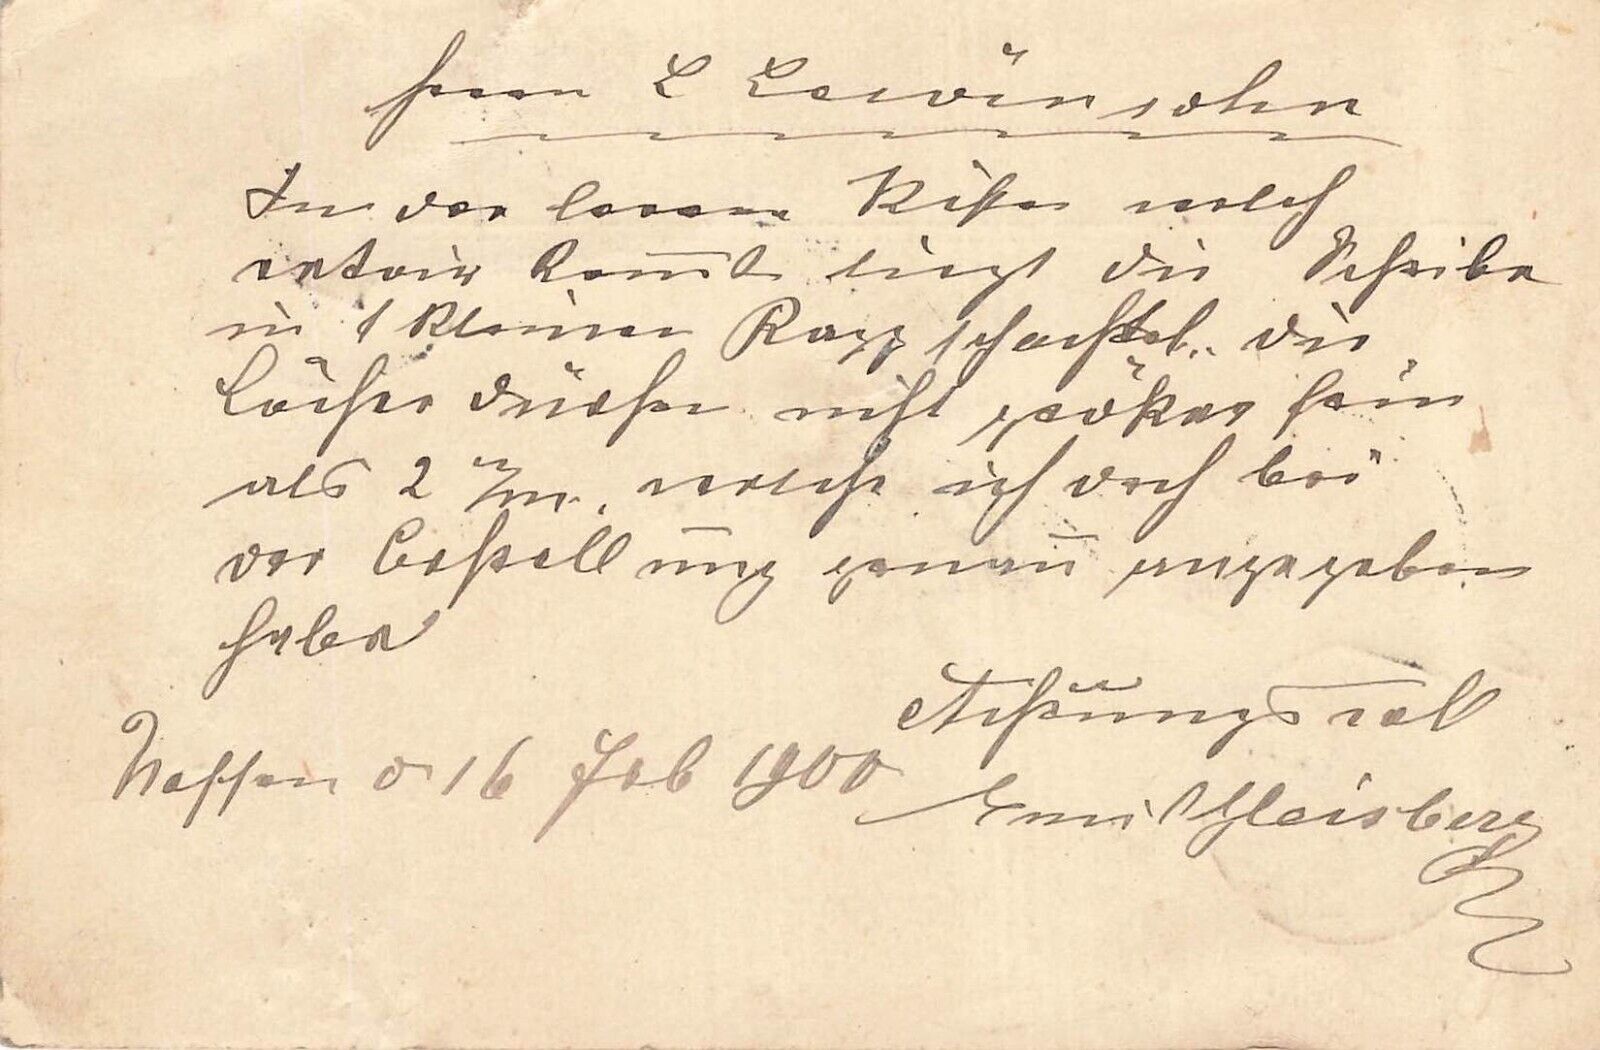 Herrn L Lewinsohn
In der leeren Kiste welch
retour komt liegt die Scheibe
in 1 kleiner Kappschachtel. die
Löcher dürfen nicht größer sein
als 2 m/m. welche ich doch bei
der Bestellung genau angegeben
habe
Achtungsvoll
d 16 Feb 1900
Emil Weisberg